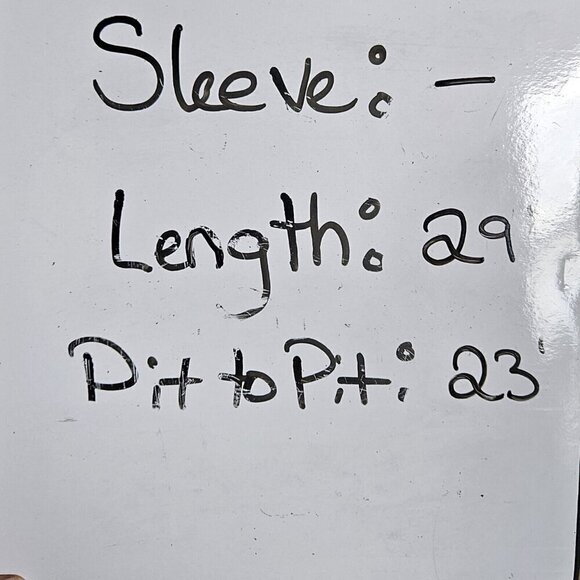 Sleeve: -
Length: 29
Pit to Pit: 23